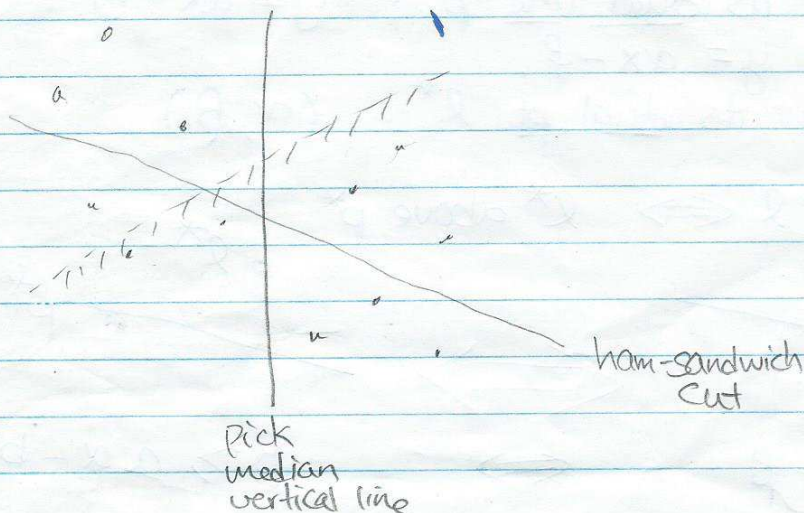 ham-sandwich
cut
pick
median
vertical line